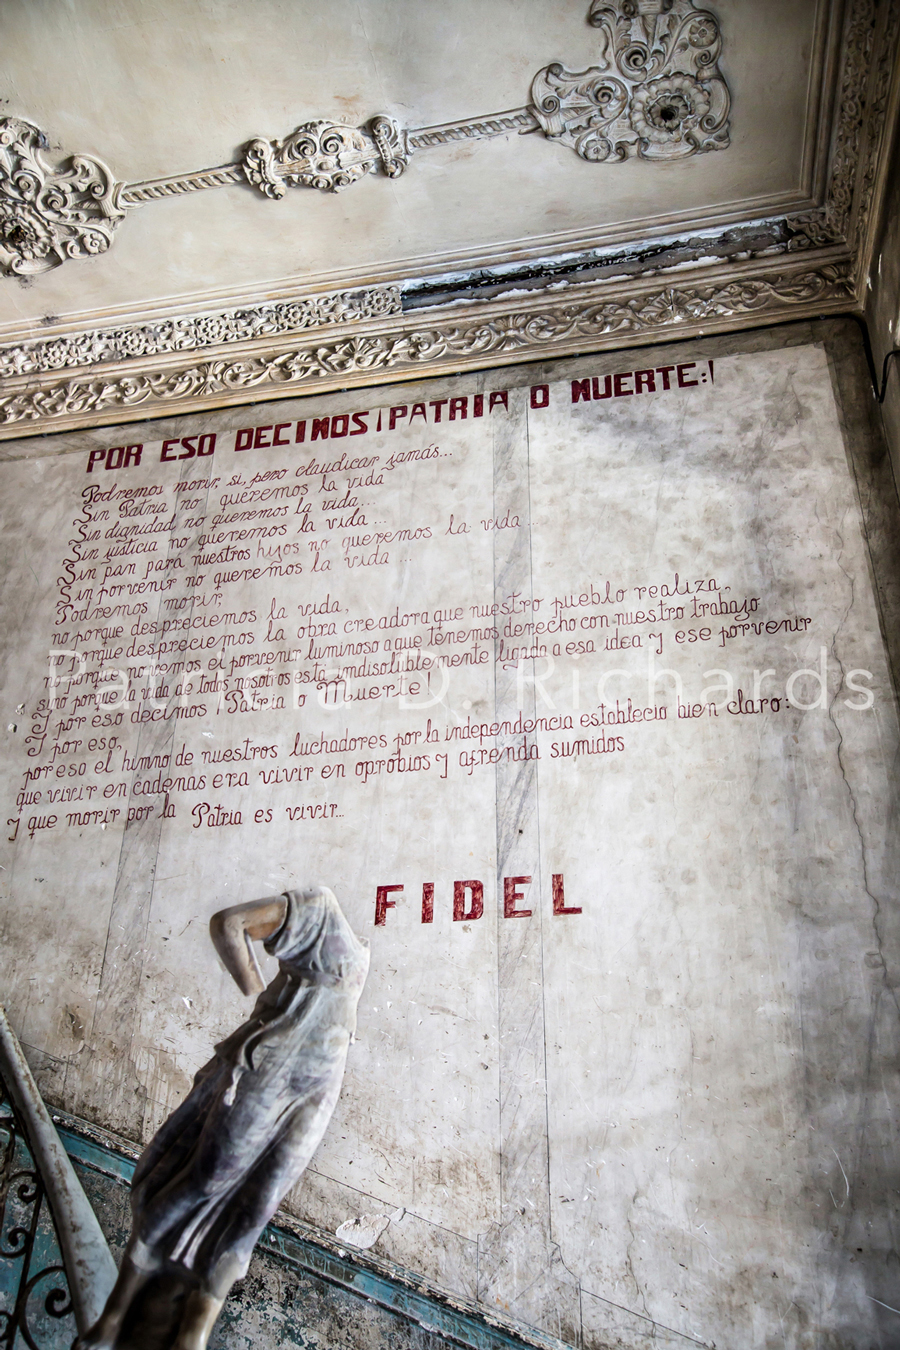 POR ESO DECIMOS ¡PATRIA O MUERTE:!
Podremos morir, si, pero claudicar jamás...
Sin Patria no queremos la vida
Sin dignidad no queremos la vida...
Sin justicia no queremos la vida...
Sin pan para nuestros hijos no queremos la vida...
Sin porvenir no queremos la vida ...
Podremos morir,
no porque despreciemos la vida,
no porque despreciemos la obra creadora que nuestro pueblo realiza,
ni porque no demos el porvenir luminoso a que tenemos derecho con nuestro trabajo
sino porque la vida de todos nosotros está indisolublemente ligada a esa idea y ese porvenir
Y por eso decimos ¡Patria o Muerte!
Y por eso,
por eso el himno de nuestros luchadores por la independencia establecio bien claro:
que vivir en cadenas era vivir en oprobios y afrenda sumidos
y que morir por la Patria es vivir...
FIDEL
Patricia D. Richards